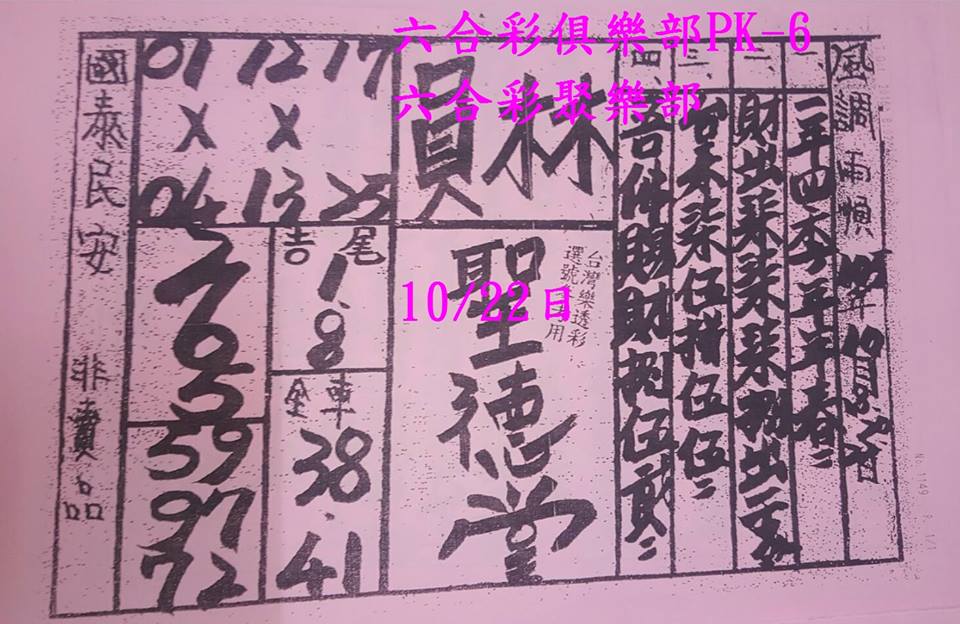 六合彩俱樂部PK-6
六合彩聚樂部
10/22日
風調雨順
一、一年四季平年春
二、財出來柒柒捌出
三、柒伍拼伍伍
四、吾件賜財捌伍貳
員林
台灣樂透彩
選號 用
聖德堂
01 12 17
X X
04 13 25
吉尾
1.8
全車
38
41
5
7
0
5
59
97
72
國泰民安
非賣品